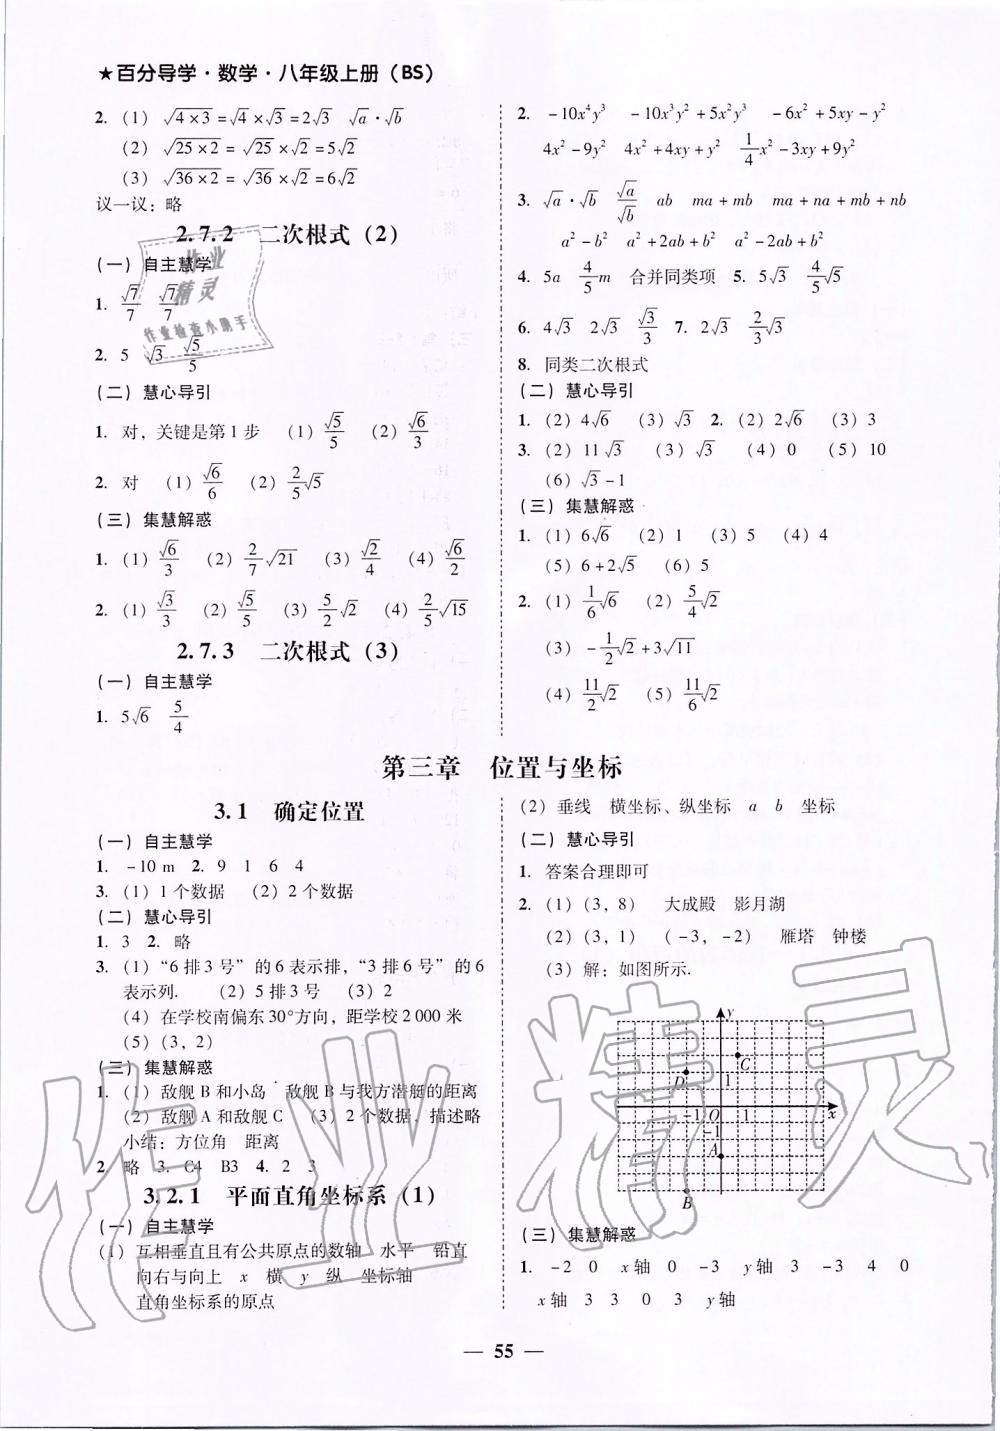 ★百分导学·数学·八年级上册（BS）
2.（1）√(4×3)=√4×√3=2√3　√a·√b
（2）√(25×2)=√25×√2=5√2
（3）√(36×2)=√36×√2=6√2
议一议：略
2.7.2　二次根式（2）
（一）自主慧学
1. √7/7　√7/7
2. 5　√3　√5/5
（二）慧心导引
1. 对，关键是第1步　（1）√5/5　（2）√6/3
2. 对　（1）√6/6　（2）2/5√5
（三）集慧解惑
1.（1）√6/3　（2）2/7√21　（3）√2/4　（4）√6/2
2.（1）√3/3　（2）√5/5　（3）5/2√2　（4）2/5√15
2.7.3　二次根式（3）
（一）自主慧学
1. 5√6　5/4
2. －10x⁴y³　－10x³y²＋5x²y³　－6x²＋5xy－y²
4x²－9y²　4x²＋4xy＋y²　1/4x²－3xy＋9y²
3. √a·√b　√a/√b　ab　ma＋mb　ma＋na＋mb＋nb
a²－b²　a²＋2ab＋b²　a²－2ab＋b²
4. 5a　4/5m　合并同类项　5. 5√3　4/5√5
6. 4√3　2√3　√3/3　7. 2√3　2/3√3
8. 同类二次根式
（二）慧心导引
1.（2）4√6　（3）√3　2.（2）2√6　（3）3
3.（2）11√3　（3）√3　（4）0　（5）10
（6）√3－1
（三）集慧解惑
1.（1）6√6　（2）1　（3）5　（4）4
（5）6＋2√5　（6）5
2.（1）1/6√6　（2）5/4√2
（3）－1/2√2＋3√11
（4）11/2√2　（5）11/6√2
第三章　位置与坐标
3.1　确定位置
（一）自主慧学
1. －10 m　2. 9　1　6　4
3.（1）1个数据　（2）2个数据
（二）慧心导引
1. 3　2. 略
3.（1）“6排3号”的6表示排，“3排6号”的6
表示列.　（2）5排3号　（3）2
（4）在学校南偏东30°方向，距学校2 000米
（5）（3，2）
（三）集慧解惑
1.（1）敌舰B和小岛　敌舰B与我方潜艇的距离
（2）敌舰A和敌舰C　（3）2个数据．描述略
小结：方位角　距离
2. 略　3. C4　B3　4. 2　3
3.2.1　平面直角坐标系（1）
（一）自主慧学
（1）互相垂直且有公共原点的数轴　水平　铅直
向右与向上　x　横　y　纵　坐标轴
直角坐标系的原点
（2）垂线　横坐标、纵坐标　a　b　坐标
（二）慧心导引
1. 答案合理即可
2.（1）（3，8）　大成殿　影月湖
（2）（3，1）　（－3，－2）　雁塔　钟楼
（3）解：如图所示.
y
C
D　1
－1　O　1　x
－1
A
B
（三）集慧解惑
1. －2　0　x轴　0　－3　y轴　3　－3　4　0
x轴　3　3　0　3　y轴
— 55 —
作业
精灵
作业检查小助手
作业精灵